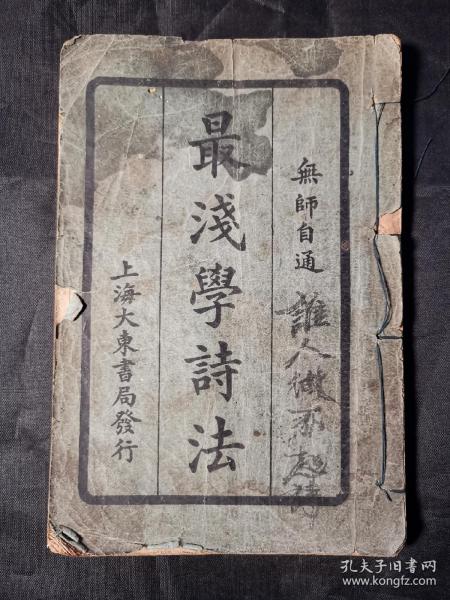 無師自通
誰人做不起詩
最淺學詩法
上海大東書局發行
孔夫子旧书网
www.kongfz.com